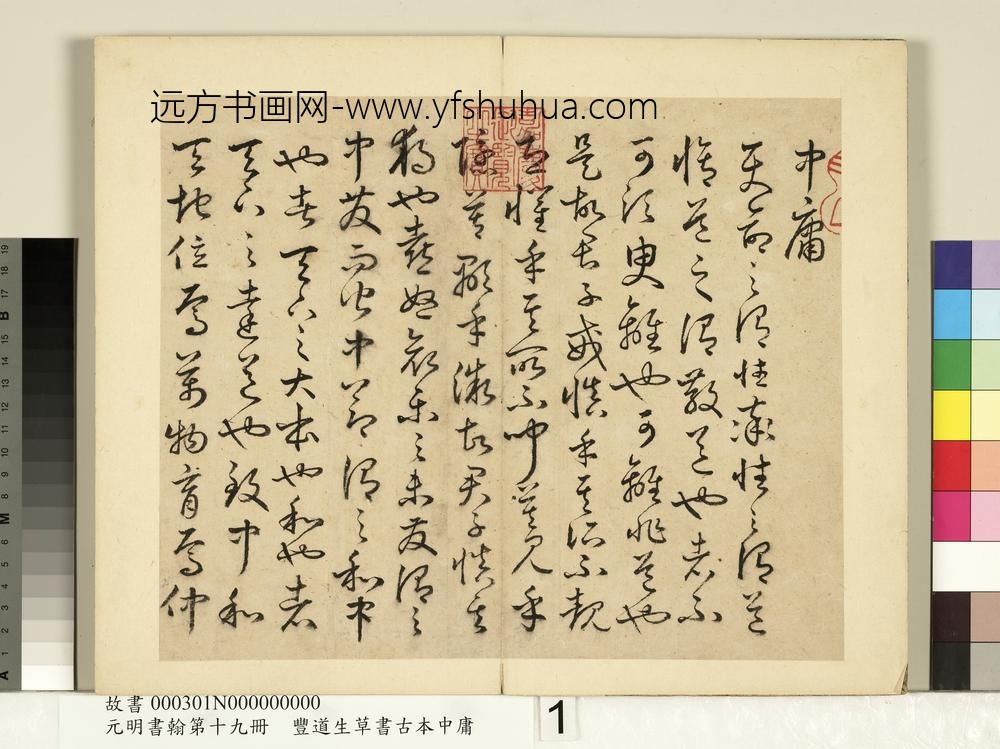 远方书画网-www.yfshuhua.com
中庸
天命之謂性率性之謂道
脩道之謂教道也者不
可須臾離也可離非道也
是故君子戒慎乎其所不覩
恐懼乎其所不聞莫見乎
隱莫顯乎微故君子慎其
獨也喜怒哀樂之未發謂之
中發而皆中節謂之和中
也者天下之大本也和也者
天下之達道也致中和
天地位焉萬物育焉仲
故書 000301N000000000
元明書翰第十九冊 豐道生草書古本中庸
1